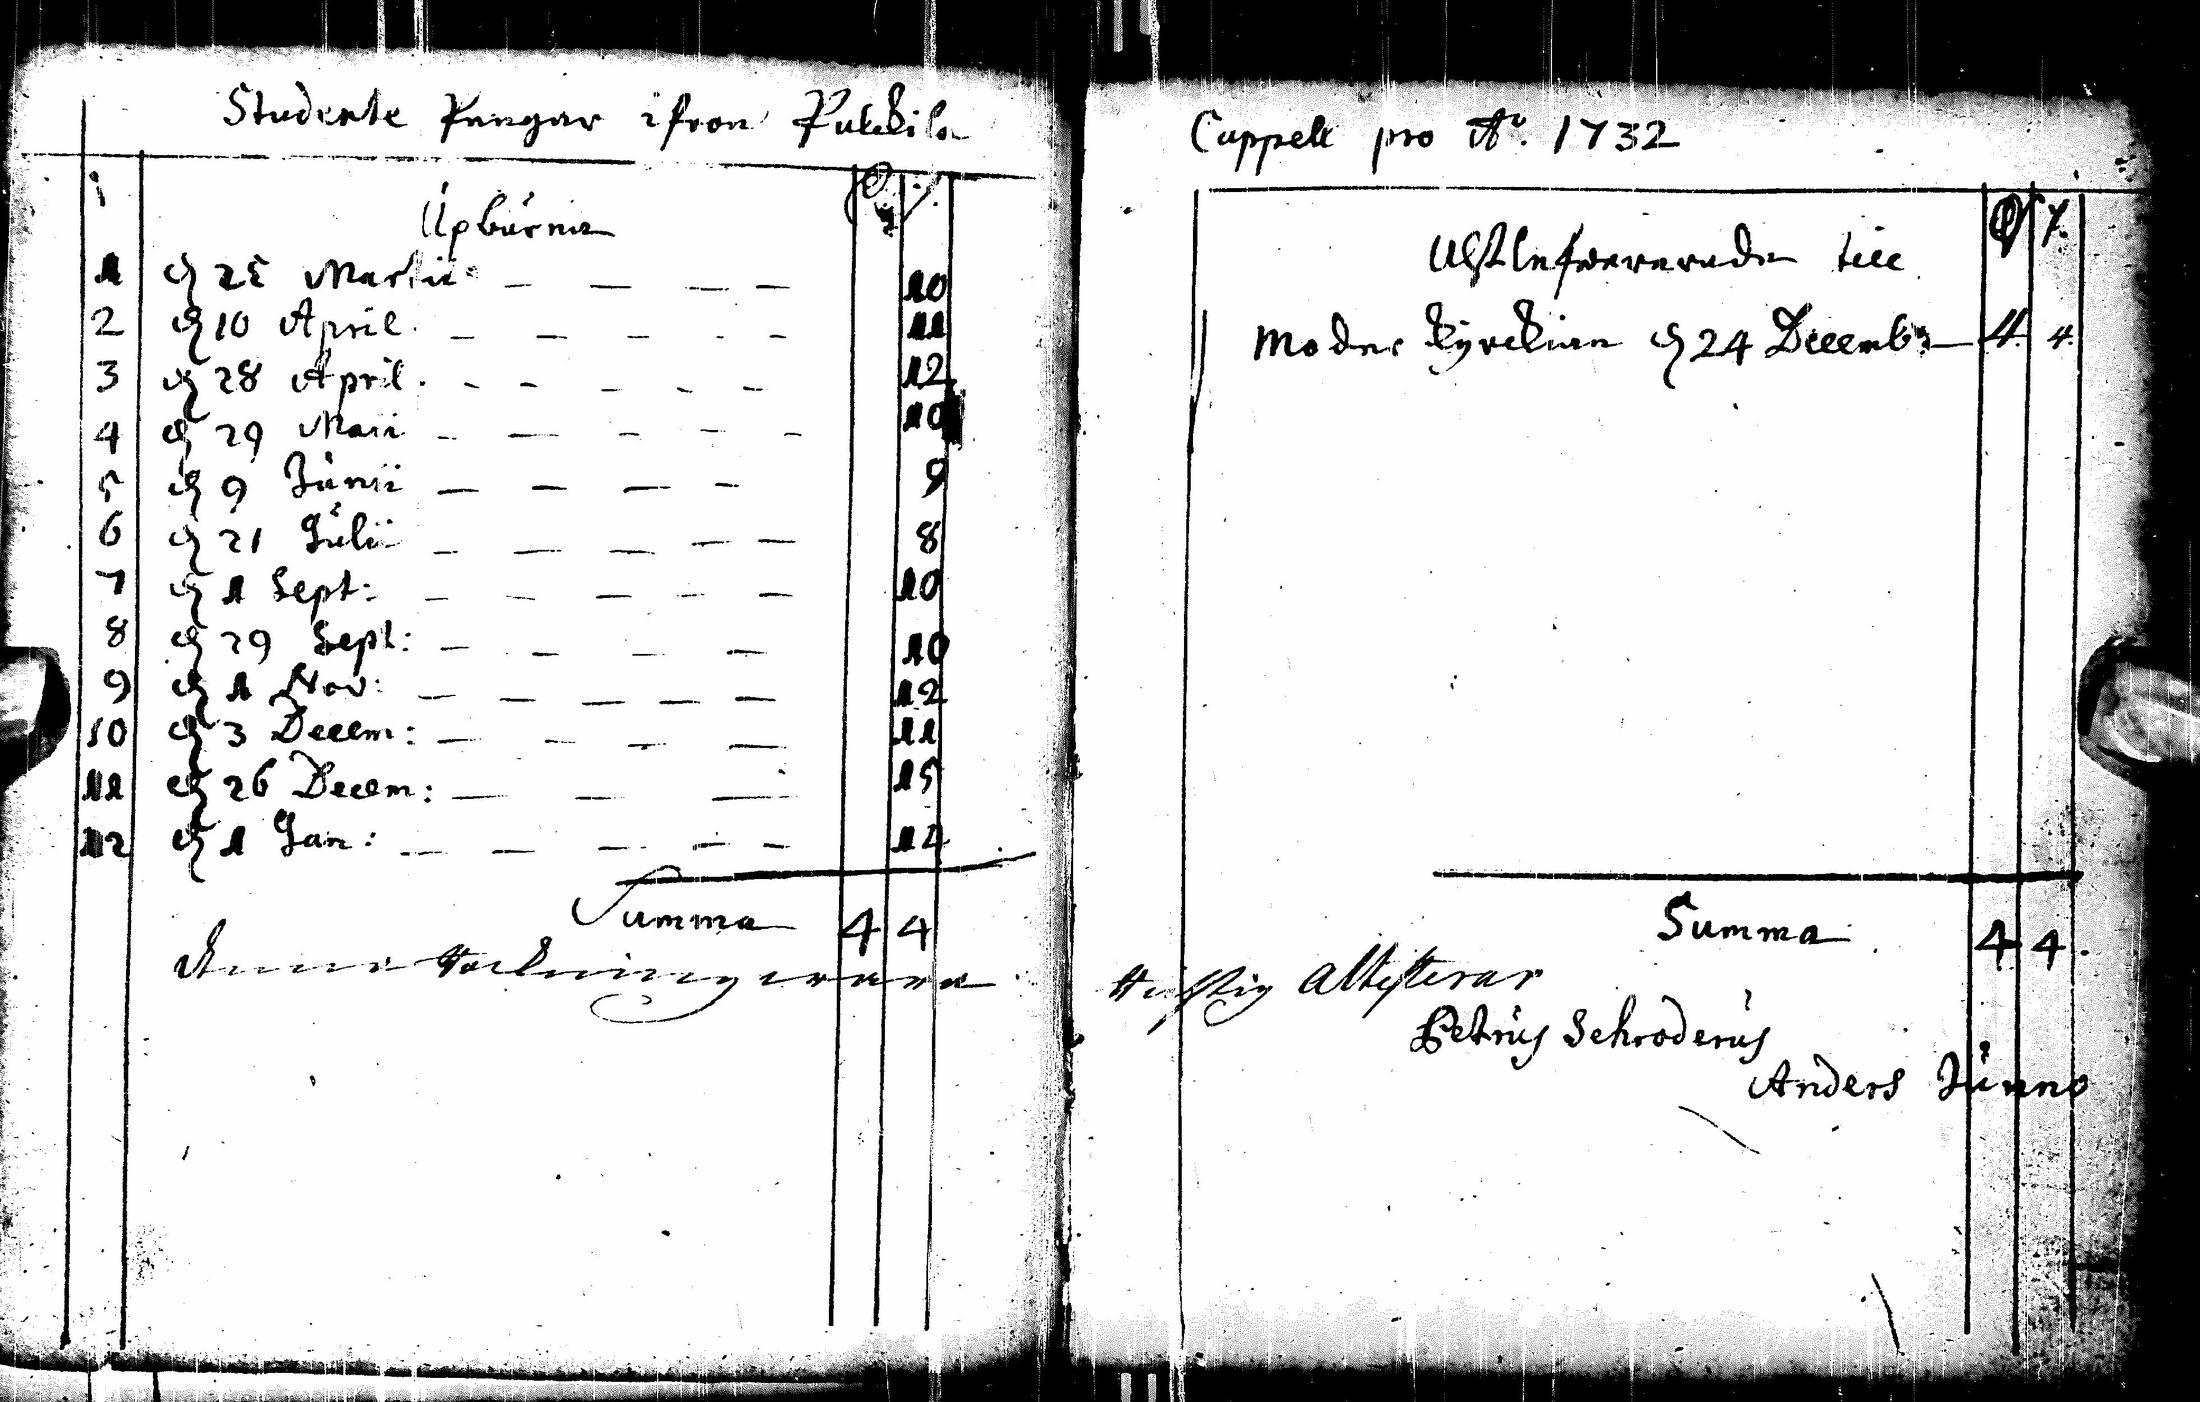 Studente Pengar ifron Pukkila
Upburne
1 d 25 Martii 10
2 d 10 April. 11
3 d 28 April. 12
4 d 29 Maii 10
5 d 9 Junii 9
6 d 21 Julii 8
7 d 1 Sept: 10
8 d 29 Sept: 10
9 d 1 Nov: 12
10 d 3 Decem: 11
11 d 26 Decem: 15
12 d 1 Jan:
Summa 4 4
wara
Cappell pro Ao. 1732
till
Moder Kyrckian d 24 Decemb: 4 4
Summa 4 4.
Richtig attesterar
Petrus Schroderus
Anders Junno